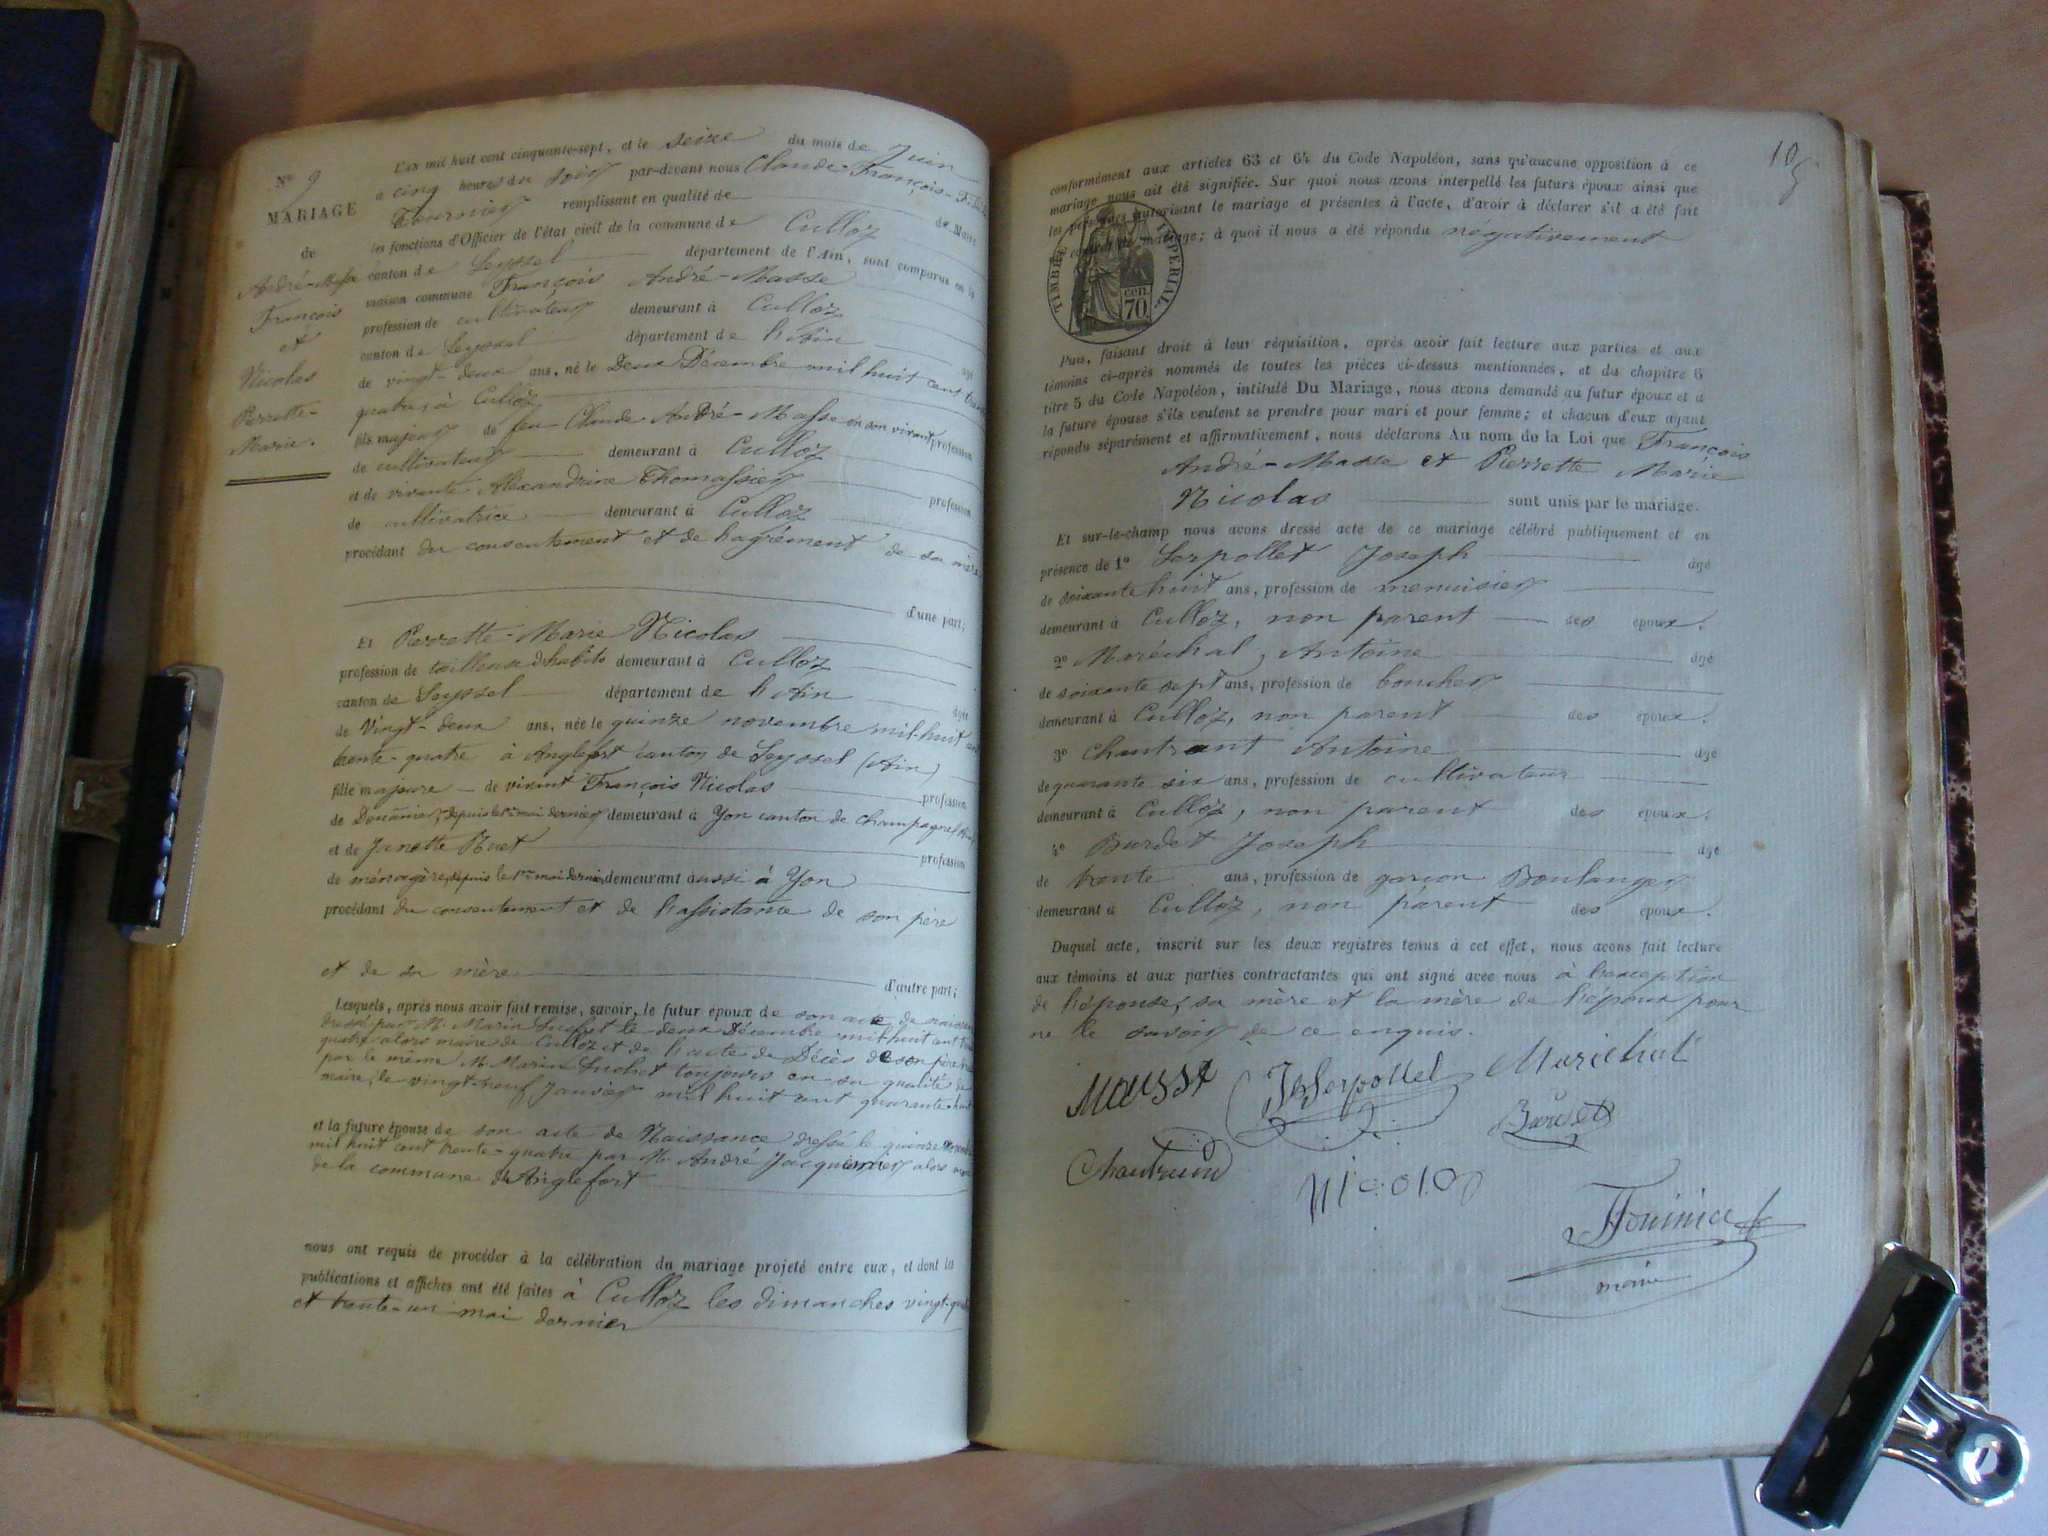 N° 9
MARIAGE
de
André-Masse
François
et
Nicolas
Pierrette-
Marie.
L'an mil huit cent cinquante-sept, et le seize du mois de Juin
à cinq heures du soir par-devant nous Claude-François-
Fournier remplissant en qualité de de Maire
les fonctions d'Officier de l'état civil de la commune de Culloz
canton de Seyssel département de l'Ain, sont comparus en la
maison commune François André-Masse
profession de cultivateur demeurant à Culloz
canton de Seyssel département de l'Ain agé
de vingt-deux ans, né le Deux Décembre mil huit cent trente
quatre, à Culloz
fils majeur de feu Claude André-Masse en son vivant profession
de cultivateur demeurant à Culloz
et de vivante Alexandrine Thomassier profession
de cultivatrice demeurant à Culloz
procédant du consentement et de l'agrément de sa mère
d'une part;
Et Pierrette-Marie Nicolas
profession de tailleuse d'habits demeurant à Culloz
canton de Seyssel département de l'Ain agée
de Vingt-deux ans, née le quinze novembre mil-huit cent
trente-quatre à Anglefort canton de Seyssel (Ain)
fille majeure de vivant François Nicolas profession
de Douanier, depuis le 1er mai dernier demeurant à Yon canton de Champagne (Ain)
et de Janette Ruet profession
de ménagère, depuis le 1er mai dernier demeurant aussi à Yon
procédant du consentement et de l'assistance de son père
et de sa mère d'autre part;
Lesquels, après nous avoir fait remise, savoir, le futur époux de son acte de naissance
dressé par M. Marin Suchet le deux Décembre mil huit cent trente
quatre alors maire de Culloz et de l'acte de Décès de son père
par le même M. Marin Suchet toujours en sa qualité de
maire, le vingt-neuf Janvier mil huit cent quarante-huit
et la future épouse de son acte de Naissance dressé le quinze novembre
mil huit cent trente-quatre par M. André Jacquemier alors maire
de la commune d'Anglefort
nous ont requis de procéder à la célébration du mariage projeté entre eux, et dont les
publications et affiches ont été faites à Culloz les dimanches vingt-quatre
et trente-un mai dernier
10
conformément aux articles 63 et 64 du Code Napoléon, sans qu'aucune opposition à ce
mariage nous ait été signifiée. Sur quoi nous avons interpellé les futurs époux ainsi que
les personnes autorisant le mariage et présentes à l'acte, d'avoir à déclarer s'il a été fait
un contrat de mariage; à quoi il nous a été répondu négativement
TIMBRE IMPÉRIAL
70 cen.
Puis, faisant droit à leur réquisition, après avoir fait lecture aux parties et aux
témoins ci-après nommés de toutes les pièces ci-dessus mentionnées, et du chapitre 6
titre 5 du Code Napoléon, intitulé Du Mariage, nous avons demandé au futur époux et à
la future épouse s'ils veulent se prendre pour mari et pour femme; et chacun d'eux ayant
répondu séparément et affirmativement, nous déclarons Au nom de la Loi que François
André-Masse et Pierrette Marie
Nicolas sont unis par le mariage.
Et sur-le-champ nous avons dressé acte de ce mariage célébré publiquement et en
présence de 1° Serpollet Joseph agé
de soixante huit ans, profession de menuisier
demeurant à Culloz, non parent des époux.
2° Maréchal, Antoine agé
de soixante sept ans, profession de boucher
demeurant à Culloz, non parent des époux.
3° Chautrant Antoine agé
de quarante six ans, profession de cultivateur
demeurant à Culloz, non parent des époux.
4° Burdet Joseph agé
de trente ans, profession de garçon Boulanger
demeurant à Culloz, non parent des époux.
Duquel acte, inscrit sur les deux registres tenus à cet effet, nous avons fait lecture
aux témoins et aux parties contractantes qui ont signé avec nous à l'exception
de l'épouse, sa mère et la mère de l'époux pour
ne le savoir de ce enquis.
Masse Jh Serpollet Marichal
Burdet
Chautrand Nicolas
Fournier
maire